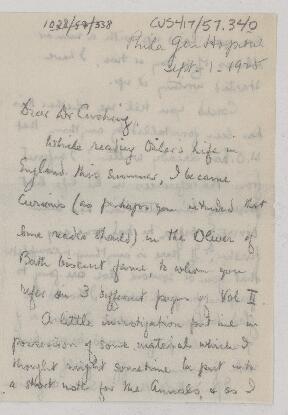 1028/57/338
CUS417/57.340
Phila Gen Hospital
Sept. 1 - 1925
Dear Dr Cushing,
While reading Osler's Life in
England this summer, I became
curious (as perhaps you intended that
some reader should) in the Oliver of
Bath biscuit fame, to whom you
refer on 3 different pages of Vol II
A little investigation put me in
possession of some material which I
thought might sometime be put into
a short note for the Annals, & as I